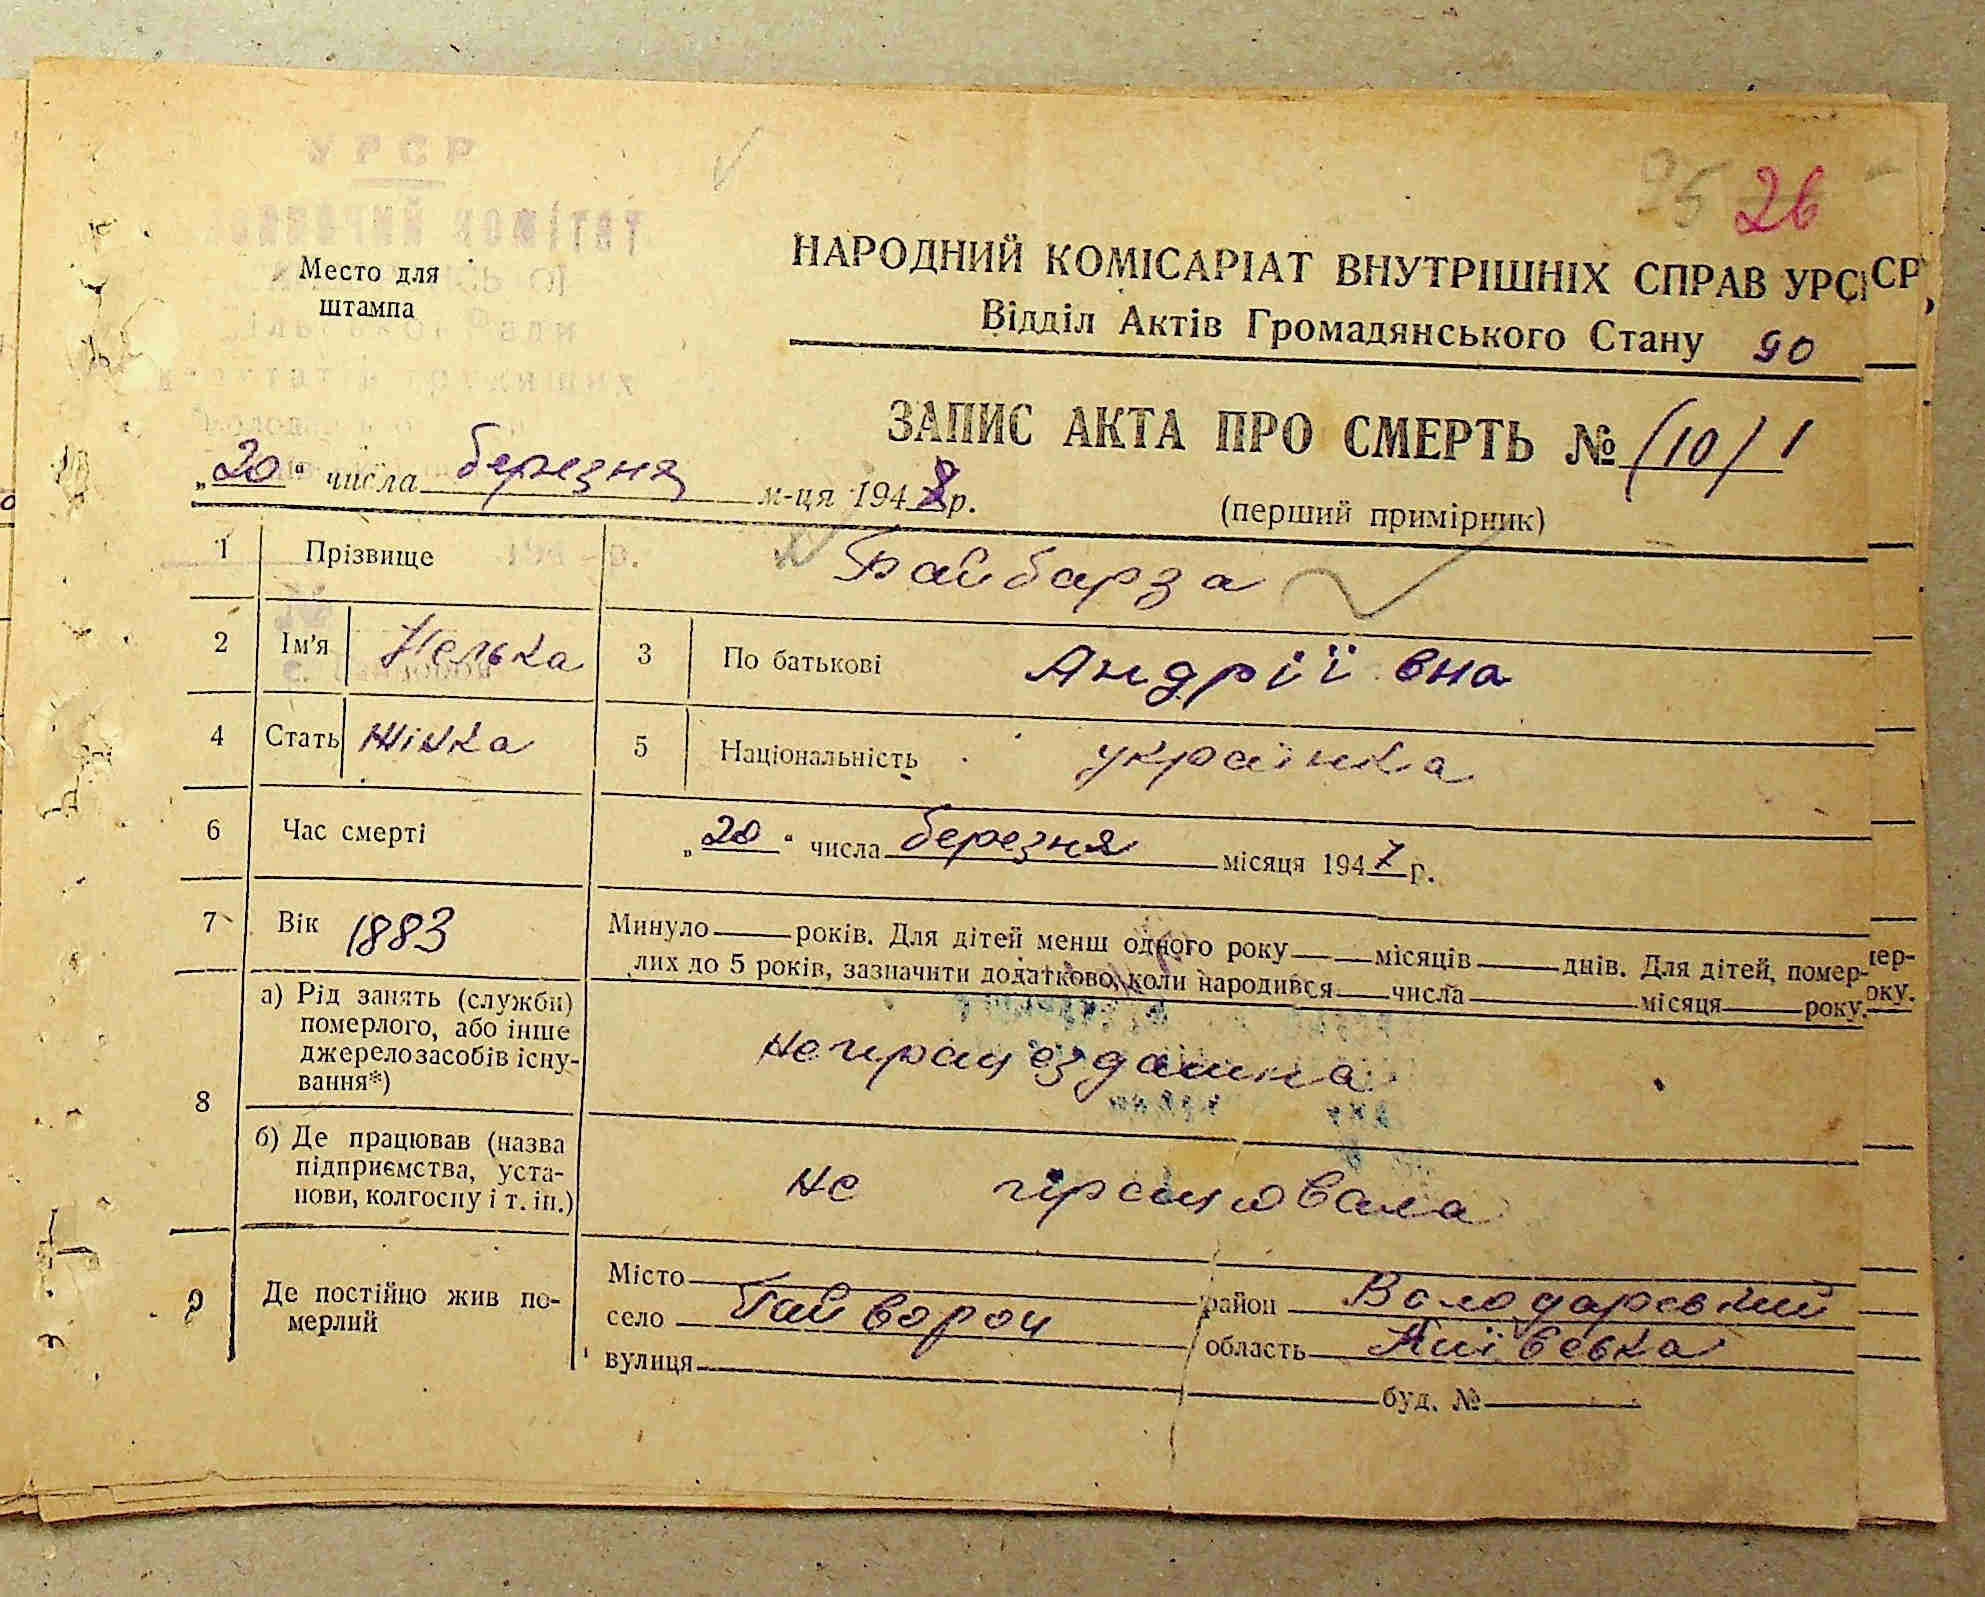 УРСР
25 26
Место для
штампа
НАРОДНИЙ КОМІСАРІАТ ВНУТРІШНІХ СПРАВ УРСР
Відділ Актів Громадянського Стану 90
ЗАПИС АКТА ПРО СМЕРТЬ № (10) 1
„20“ числа березня м-ця 194 р.
(перший примірник)
1 Прізвище Байбарза
2 Ім'я 3 По батькові Андріївна
4 Стать жінка 5 Національність українка
6 Час смерті „20“ числа березня місяця 1947 р.
7 Вік 1883 Минуло років. Для дітей менш одного року місяців днів. Для дітей, помер-
лих до 5 років, зазначити додатково, коли народився числа місяця року.
8 а) Рід занять (служби)
померлого, або інше
джерелозасобів існу-
вання*)
непрацездатна
б) Де працював (назва
підприємства, уста-
нови, колгоспу і т. ін.)
не працювала
9 Де постійно жив по-
мерлий
Місто район Володарський
село Гайворон область Київська
вулиця буд. №